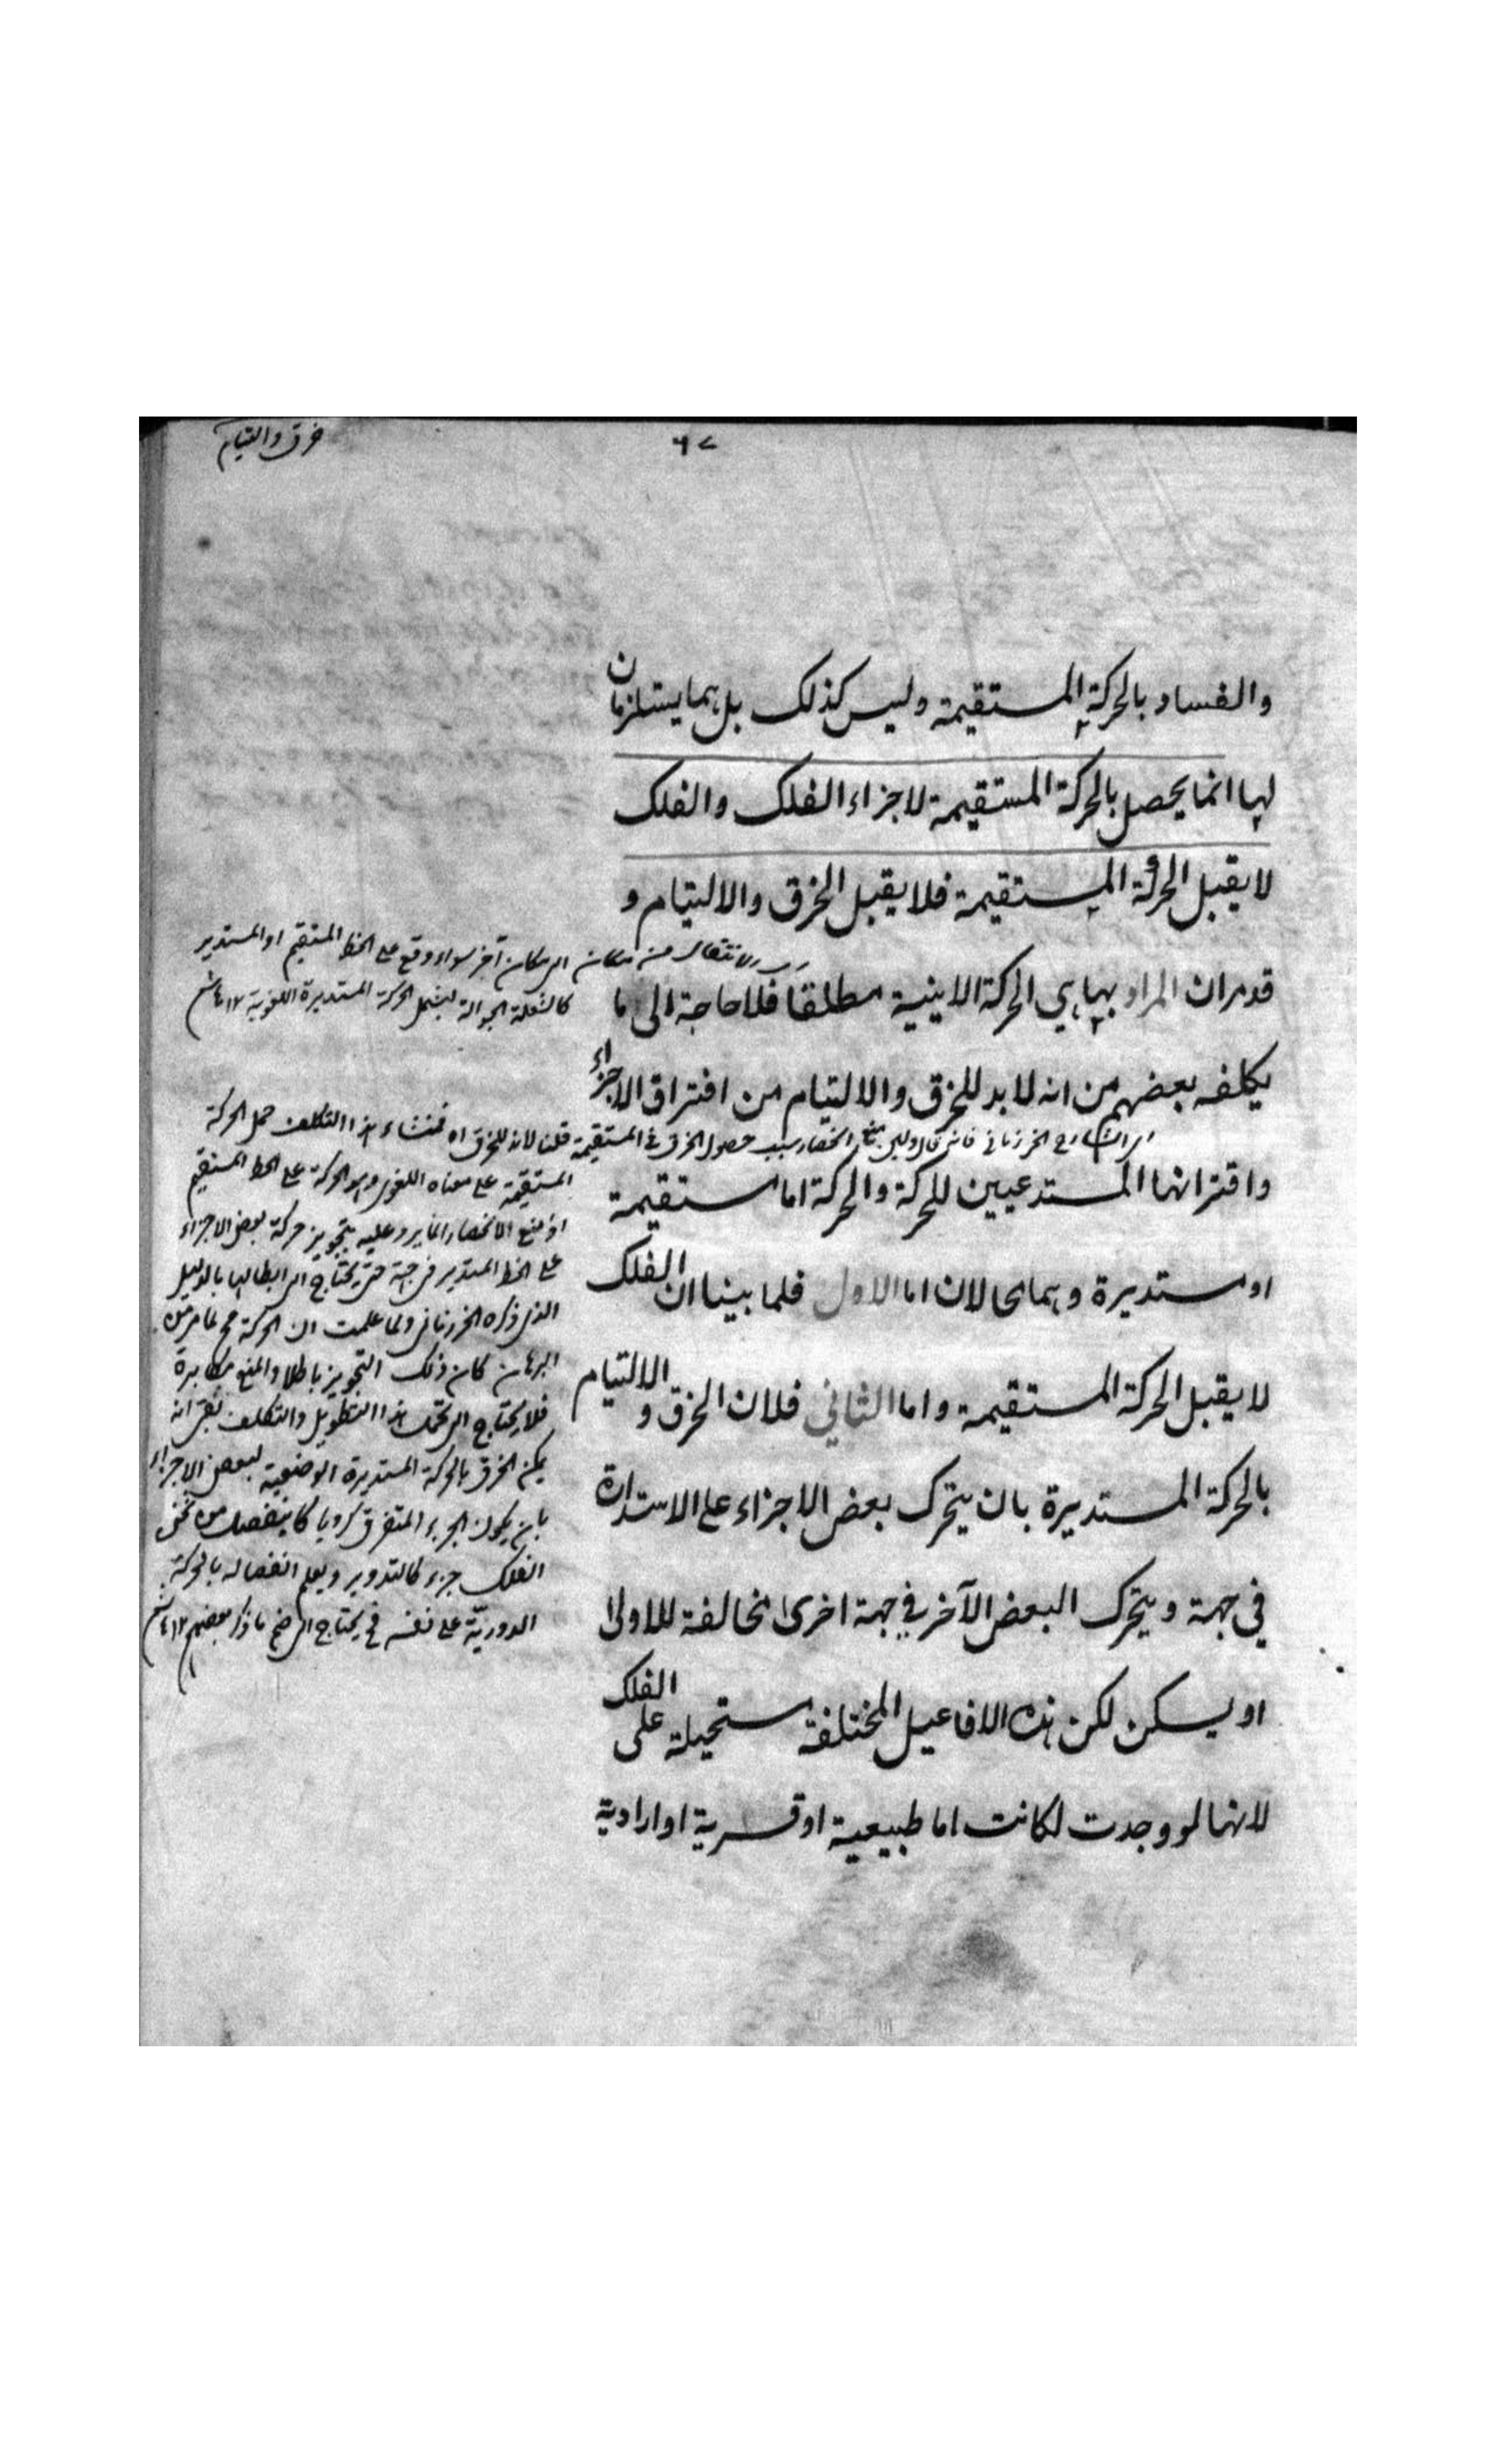 خرق والتيام
٦٧
والفساد بالحركة المستقيمة وليس كذلك بل هما يستلزمان
لها انما يحصل بالحركة المستقيمة لاجزاء الفلك والفلك
لا يقبل الحركة المستقيمة فلا يقبل الخرق والالتيام و
قد مر ان المراد بها هي الحركة الاينية مطلقا فلا حاجة الى ما
يكلفه بعضهم من انه لا بد للخرق والالتيام من افتراق الاجزاء
واقترانها المستدعيين للحركة والحركة اما مستقيمة
او مستديرة وهما محالان اما الاول فلما بينا ان الفلك
لا يقبل الحركة المستقيمة واما الثاني فلان الخرق والالتيام
بالحركة المستديرة بان يتحرك بعض الاجزاء على الاستدارة
في جهة ويتحرك البعض الآخر في جهة اخرى مخالفة للاولى
او يسكن لكن هذه الافاعيل المختلفة مستحيلة على الفلك
لانها لو وجدت لكانت اما طبيعية او قسرية او ارادية
الانتقال من مكان الى مكان آخر سواء وقع على الخط المستقيم او المستدير
كالشعلة الجوالة ليشمل الحركة المستديرة اللغوية ١٢
الشارح الخرزياني فانه قال وليس منع انحصار سبب حصول الخرق في المستقيمة قلنا لانه للخرق اه فمنشاء هذا التكلف حمل الحركة
المستقيمة على معناه اللغوي وهو الحركة على الخط المستقيم
اذ منع الانحصار انما يرد عليه بتجويز حركة بعض الاجزاء
على الخط المستدير في جهة حتى يحتاج الى ابطالها بالدليل
الذي ذكره الخرزياني ولما علمت ان الحركة مح لما مر من
البرهان كان ذلك التجويز باطلا والمنع مكابرة
فلا يحتاج الى تحمل هذا التطويل والتكلف نعم بقى انه
يمكن الخرق بالحركة المستديرة الوضعية لبعض الاجزاء
بان يكون الجزء المتفرق كرويا كما ينفصل من ثخن
الفلك جزء كالتدوير ويعلم انفصاله بالحركة
الدورية على نفسه فح يحتاج الى ضم ما ذكر بعضهم ١٢